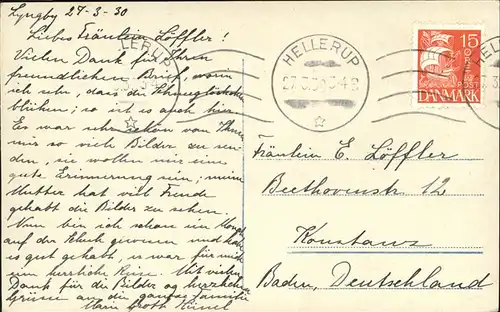 Lyngby 27-3-30
Liebes Fräulein Löffler!
Vielen Dank für Ihren
freundlichen Brief, worin
ich sehe, dass die Schneeglöckchen
blühen; so ist es auch hier.
Es war sehr schön von Ihnen
mir so viele Bilder zu sen-
den, sie wollen mir eine
gute Erinnerung sein; meine
Mutter hat viel Freude
gehabt die Bilder zu sehen.
Nun bin ich schon ein Monat
auf der Schule gewesen und habe
es gut gehabt, es war für mich
eine herrliche Reise. Mit vielen
Dank für die Bilder und herzlichen
Grüsse an die ganze Familie
HELLERUP
27.3.30 3-4 E
LERUP
HEL
15
ØRE
POST
DANMARK
Fräulein E. Löffler
Beethovenstr. 12
Konstanz
Baden, Deutschland